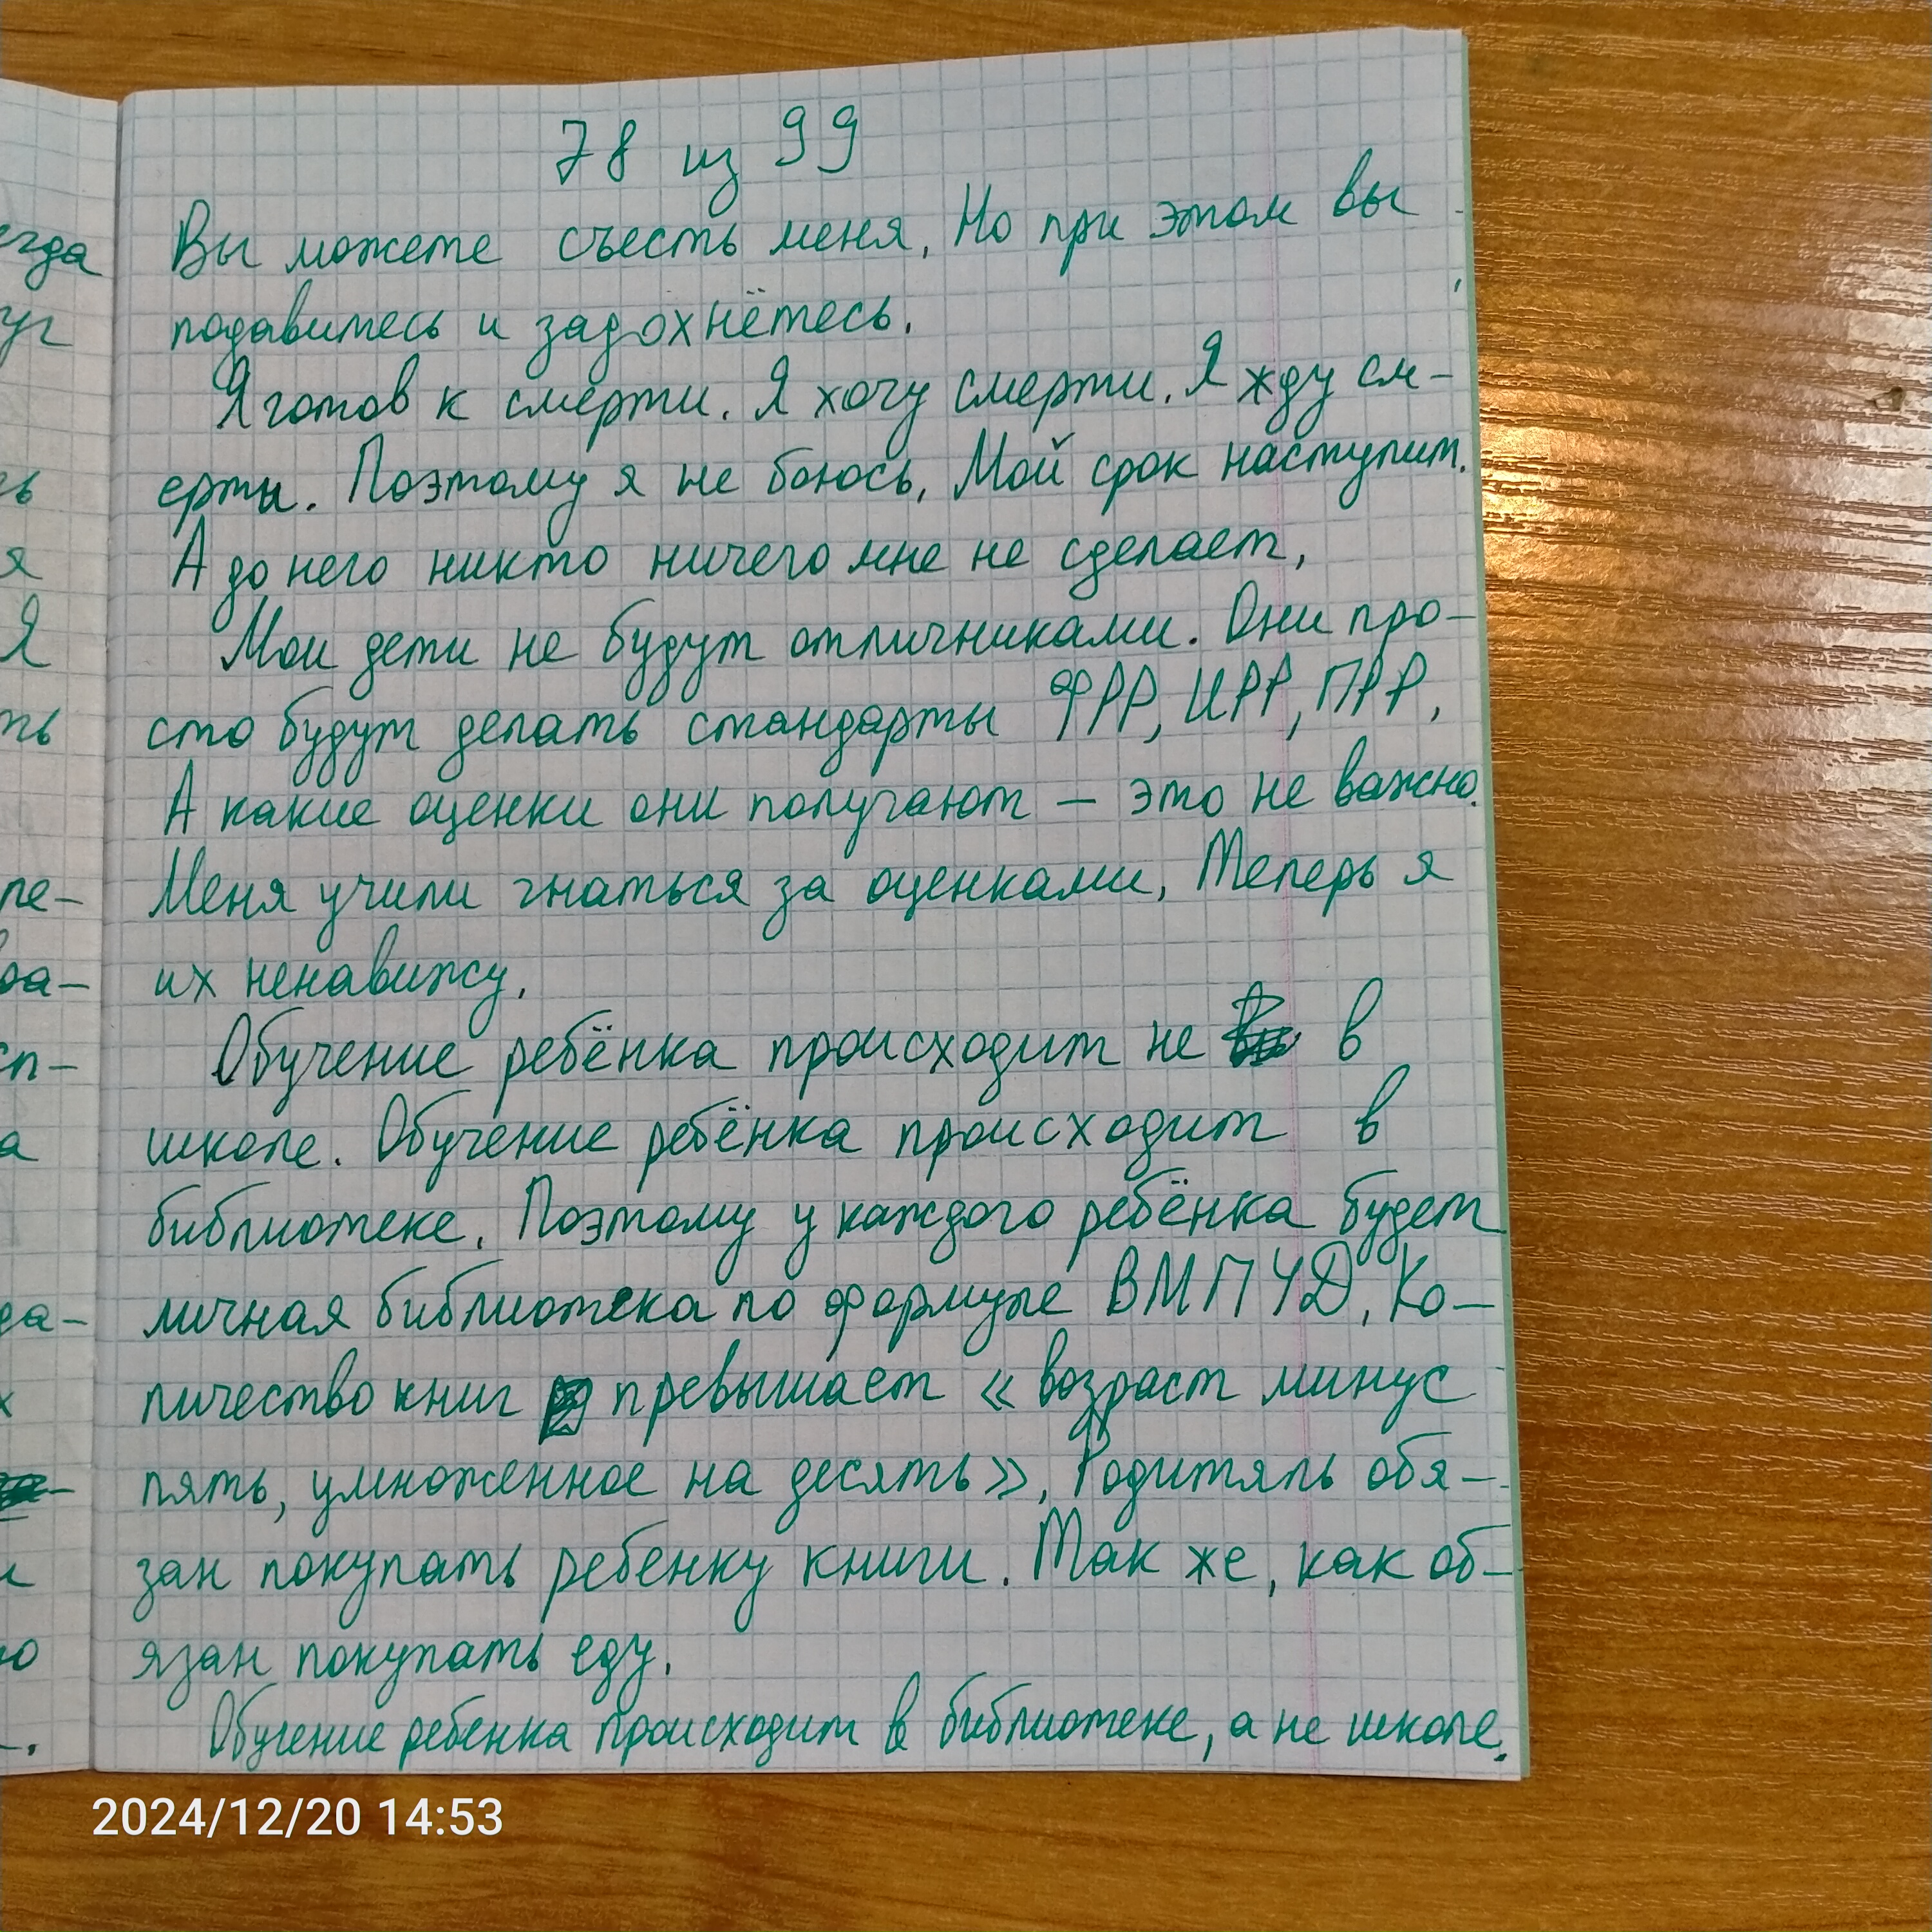 78 из 99
Вы можете съесть меня. Но при этом вы
подавитесь и задохнётесь.
Я готов к смерти. Я хочу смерти. Я жду см-
ерти. Поэтому я не боюсь. Мой срок наступит.
А до него никто ничего мне не сделает.
Мои дети не будут отличниками. Они про-
сто будут делать стандарты ФРР, ИРР, ПРР.
А какие оценки они получают – это не важно.
Меня учили гнаться за оценками. Теперь я
их ненавижу.
Обучение ребёнка происходит не в
школе. Обучение ребёнка происходит в
библиотеке. Поэтому у каждого ребёнка будет
личная библиотека по формуле ВМПУД. Ко-
личество книг превышает «возраст минус
пять, умноженное на десять». Родитяль обя-
зан покупать ребенку книги. Так же, как об-
язан покупать еду.
Обучение ребенка происходит в библиотеке, а не школе.
егда
уг
ь
я
Я
ть
ле-
ва-
сп-
а
да-
х
и
ю
2024/12/20 14:53